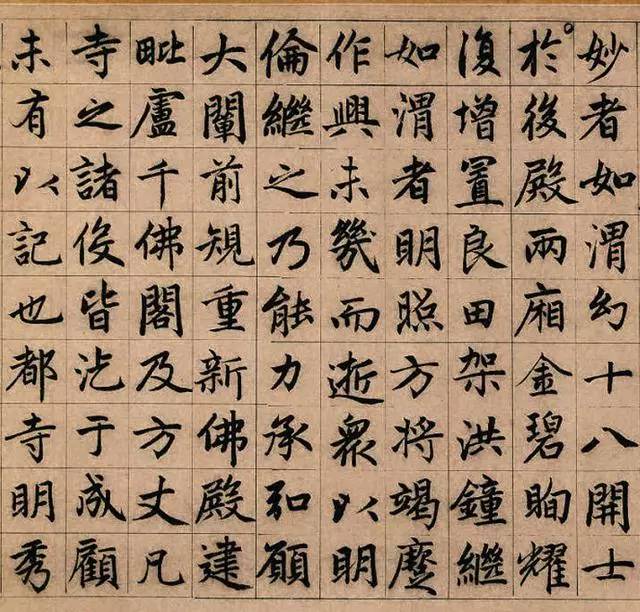 妙者如渭幻十八開士
於後殿兩廂金碧眴耀
復增置良田架洪鐘繼
如渭者明照方將竭
作興未幾而逝衆以明
倫繼之乃能力承和願
大闡前規重新佛殿建
毗盧千佛閣及方丈凡
寺之諸役皆汔于成顧
未有以記也都寺明秀